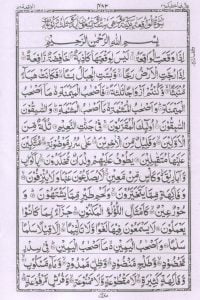 بِسْمِ اللهِ الرَّحْمٰنِ الرَّحِيْمِ
اِذَا وَقَعَتِ الْوَاقِعَةُ لَيْسَ لِوَقْعَتِهَا كَاذِبَةٌ خَافِضَةٌ رَّافِعَةٌ
اِذَا رُجَّتِ الْاَرْضُ رَجًّا وَّبُسَّتِ الْجِبَالُ بَسًّا فَكَانَتْ هَبَآءً
مُّنْۢبَثًّا وَّكُنْتُمْ اَزْوَاجًا ثَلٰثَةً فَاَصْحٰبُ الْمَيْمَنَةِ مَآ اَصْحٰبُ
الْمَيْمَنَةِ وَاَصْحٰبُ الْمَشْئَمَةِ مَآ اَصْحٰبُ الْمَشْئَمَةِ وَالسّٰبِقُوْنَ
السّٰبِقُوْنَ اُولٰٓئِكَ الْمُقَرَّبُوْنَ فِيْ جَنّٰتِ النَّعِيْمِ ثُلَّةٌ مِّنَ
الْاَوَّلِيْنَ وَقَلِيْلٌ مِّنَ الْاٰخِرِيْنَ عَلٰى سُرُرٍ مَّوْضُوْنَةٍ مُّتَّكِـِٕيْنَ
عَلَيْهَا مُتَقٰبِلِيْنَ يَطُوْفُ عَلَيْهِمْ وِلْدَانٌ مُّخَلَّدُوْنَ بِاَكْوَابٍ
وَّاَبَارِيْقَ وَكَاْسٍ مِّنْ مَّعِيْنٍ لَّا يُصَدَّعُوْنَ عَنْهَا وَلَا يُنْزِفُوْنَ
وَفَاكِهَةٍ مِّمَّا يَتَخَيَّرُوْنَ وَلَحْمِ طَيْرٍ مِّمَّا يَشْتَهُوْنَ وَ
حُوْرٌ عِيْنٌ كَاَمْثَالِ اللُّؤْلُؤِ الْمَكْنُوْنِ جَزَآءًۢ بِمَا كَانُوْا
يَعْمَلُوْنَ لَا يَسْمَعُوْنَ فِيْهَا لَغْوًا وَّلَا تَاْثِيْمًا اِلَّا قِيْلًا سَلٰمًا
سَلٰمًا وَاَصْحٰبُ الْيَمِيْنِ مَآ اَصْحٰبُ الْيَمِيْنِ فِيْ سِدْرٍ
مَّخْضُوْدٍ وَّطَلْحٍ مَّنْضُوْدٍ وَّظِلٍّ مَّمْدُوْدٍ وَّمَآءٍ مَّسْكُوْبٍ
وَّفَاكِهَةٍ كَثِيْرَةٍ لَّا مَقْطُوْعَةٍ وَّلَا مَمْنُوْعَةٍ وَّفُرُشٍ مَّرْفُوْعَةٍ